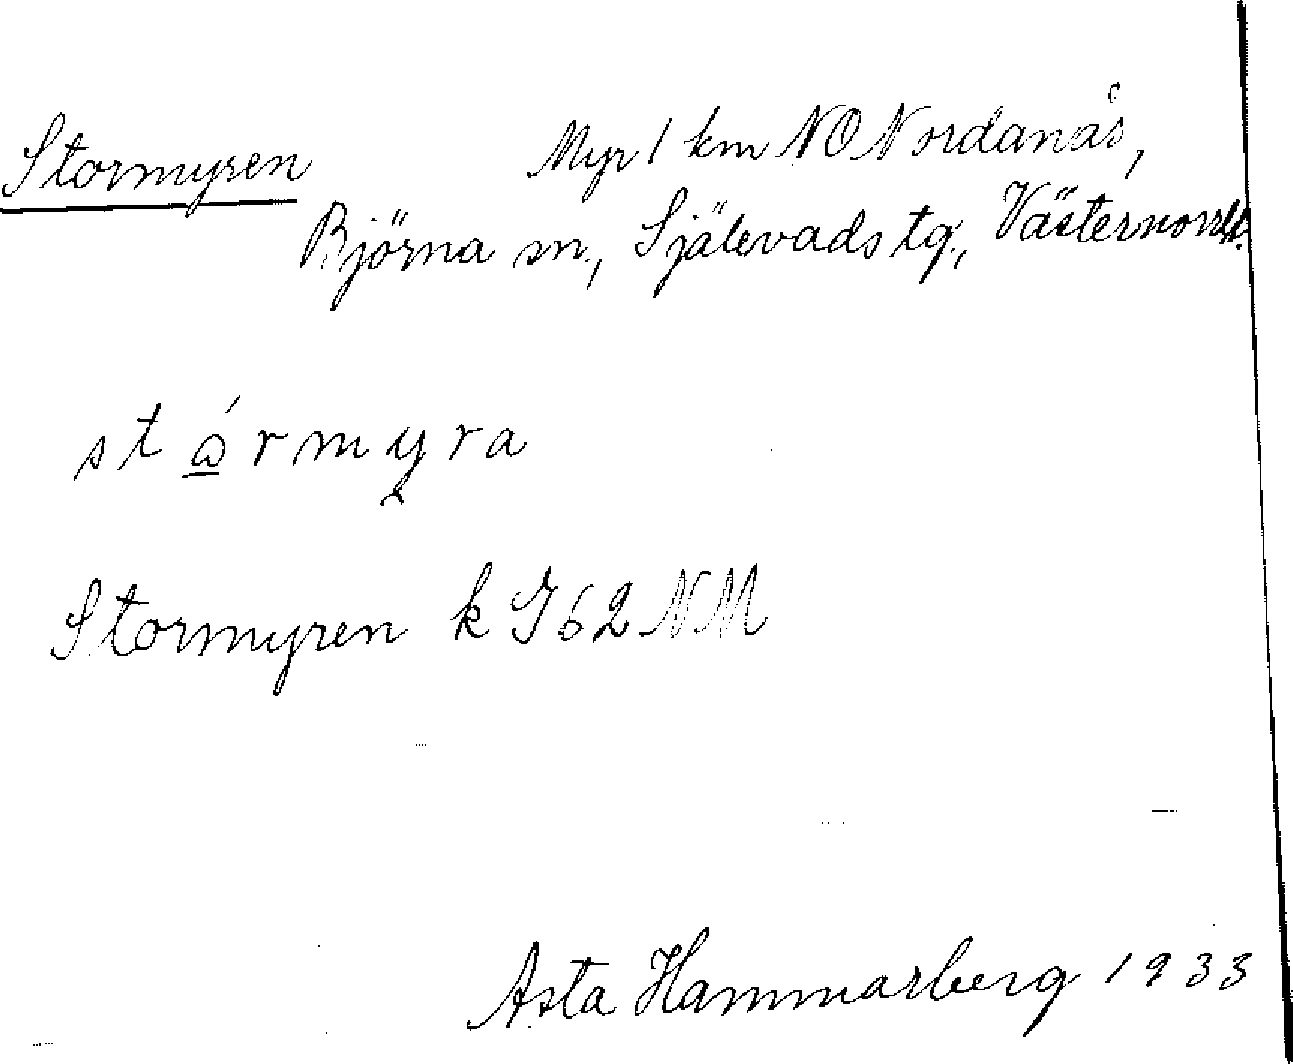 Stormyren Myr 1 km NO Nordanås,
Björna sn, Själevads tg, Västernorrl.
stårmyra
Stormyren k J62 NM
Asta Hammarberg 1933